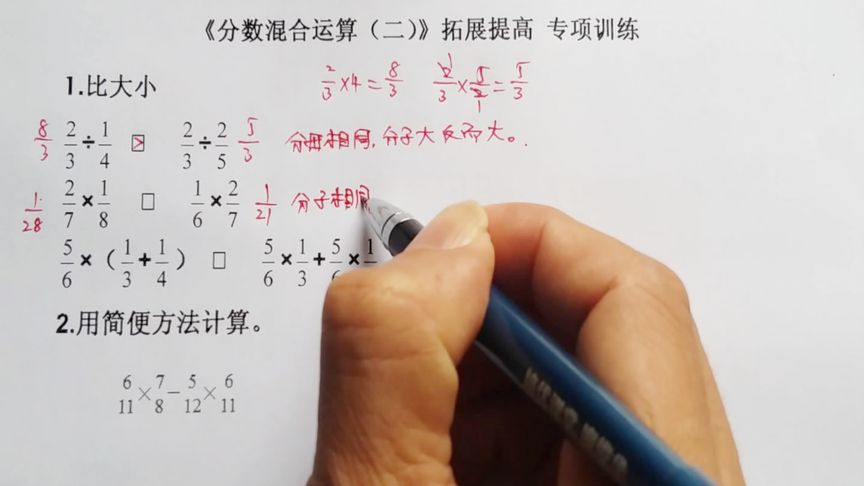 《分数混合运算（二）》拓展提高 专项训练
1.比大小
2/3×4=8/3 2/3×5/2=5/3 1 1
8/3 2/3÷1/4 □ > 2/3÷2/5 5/3 分母相同,分子大反而大。
1/28 2/7×1/8 □ 1/6×2/7 1/21 分子相同
5/6×（1/3+1/4） □ 5/6×1/3+5/6×1
2.用简便方法计算。
6/11×7/8−5/12×6/11